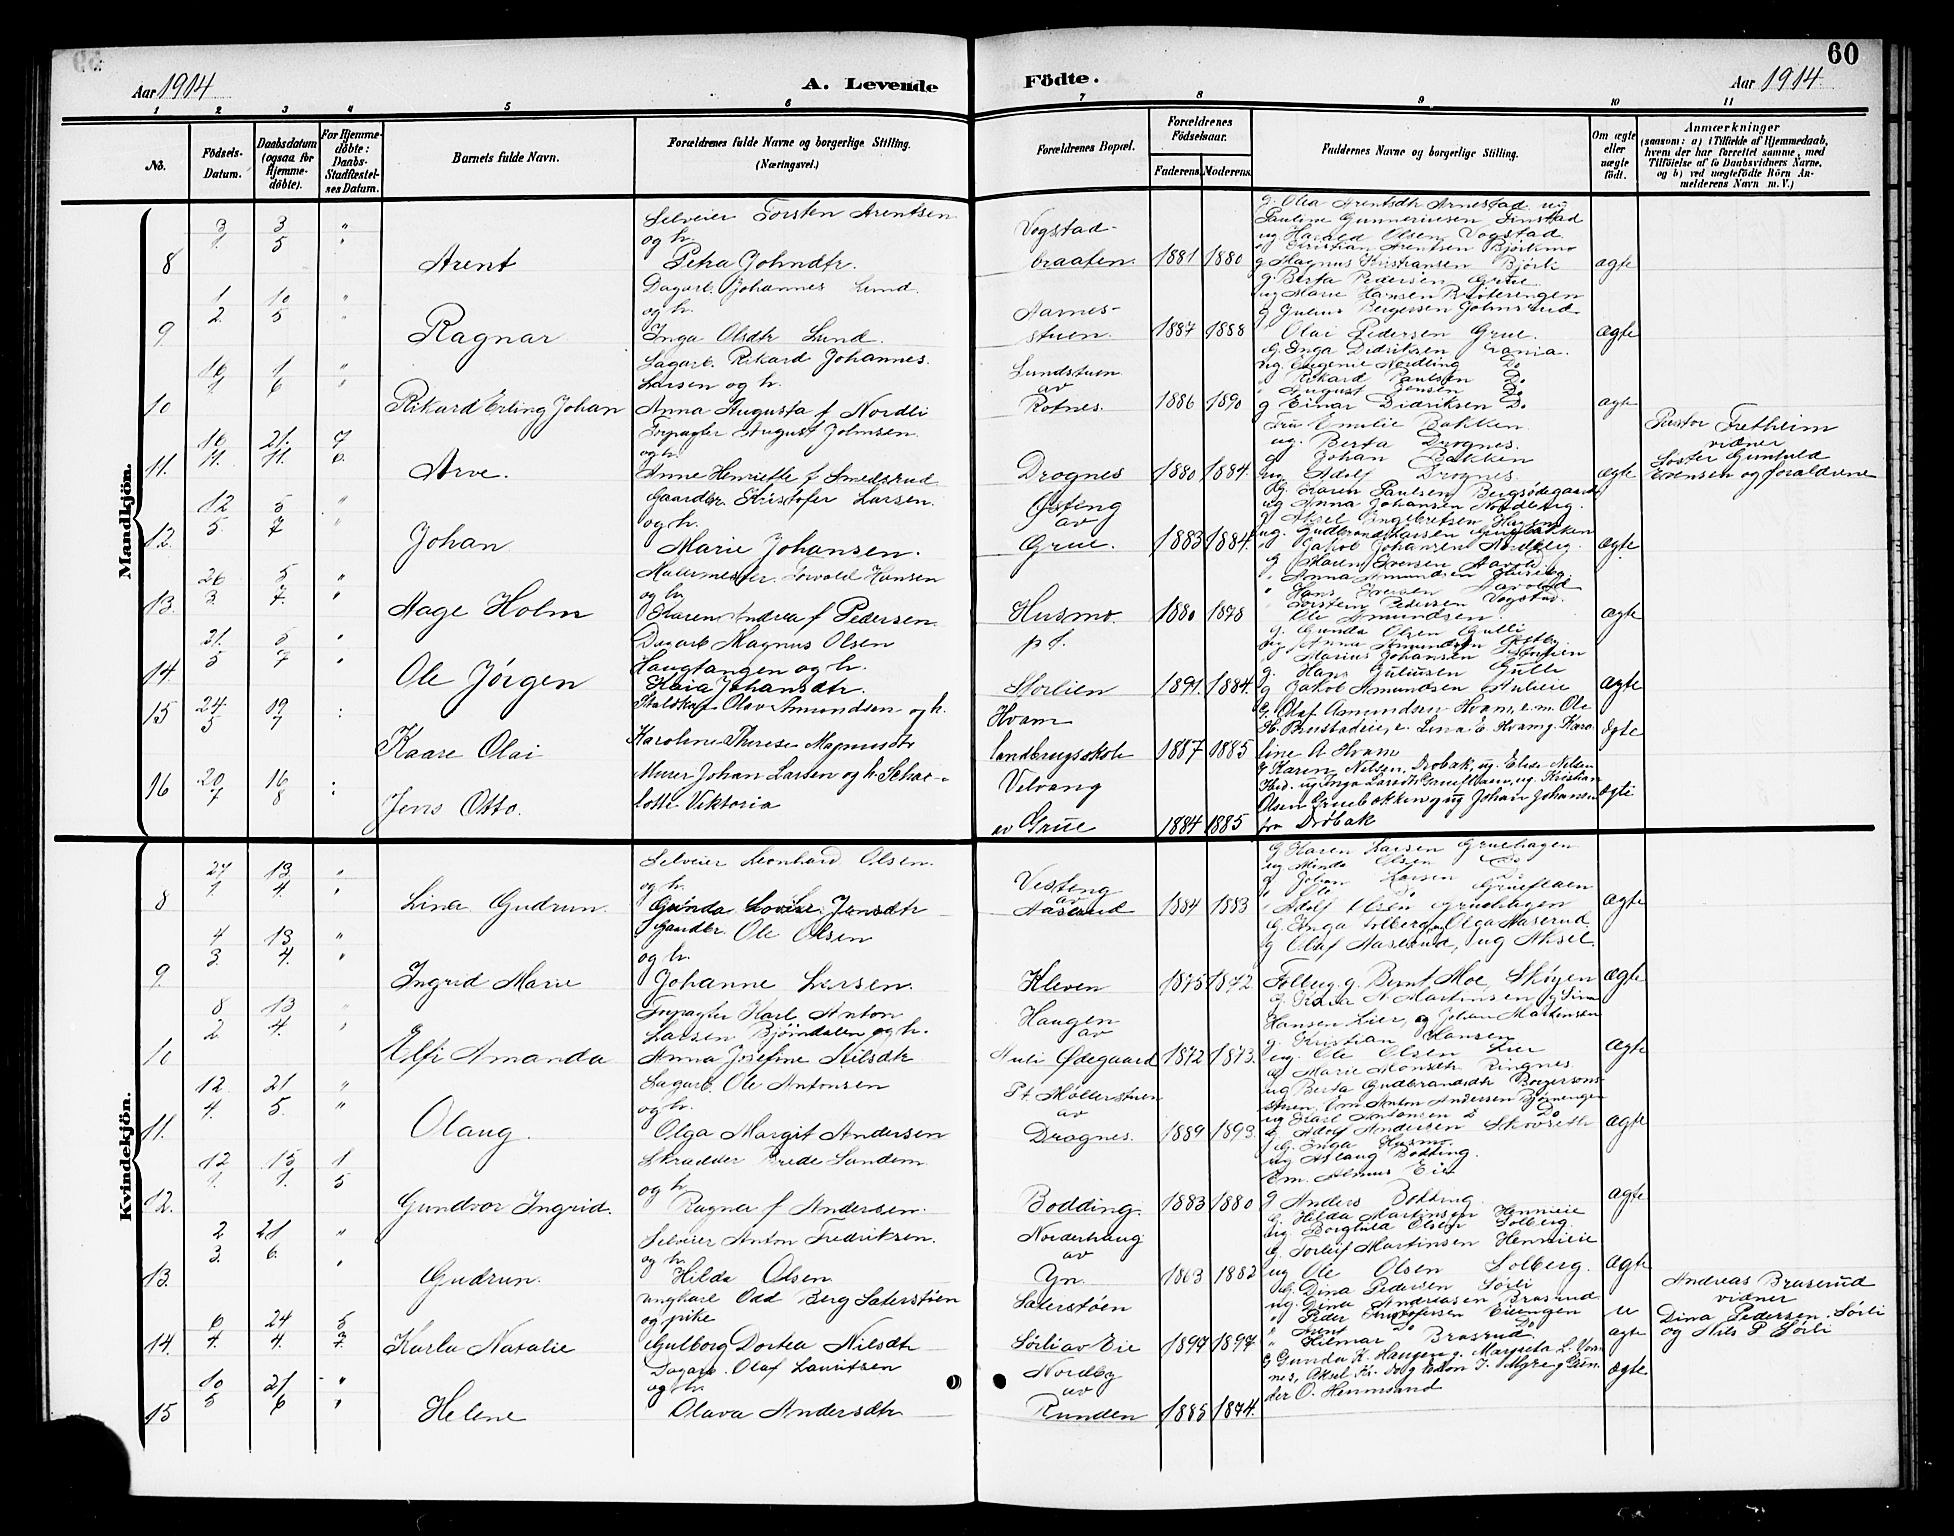 60
Aar 1914
A. Levende Födte.
Aar 1914
1 2 3 4 5 6 7 8 9 10 11
No.
Födsels-Datum.
Daabsdatum (ogsaa for Hjemmedöbte).
For Hjemmedöbte: Daabs-Stadfæstelses Datum.
Barnets fulde Navn.
Forældrenes fulde Navne og borgerlige Stilling.
(Næringsvei.)
Forældrenes Bopæl.
Forældrenes Födselsaar.
Faderens. Moderens.
Faddernes Navne og borgerlige Stilling.
Om ægte eller uægte födt.
Anmærkninger
(saasom: a) i Tilfælde af Hjemmedaab, hvem der har forrettet samme, med Tilföielse af to Daabsvidners Navne, og b) ved uægtefödte Börn Anmelderens Navn m. V.)
Mandkjön.
8 3/1 3/5 " Arent
Selveier Torsten Arentsen
og h.
Petra Johndtr.
Vogstad-
braaten. 1881 1880
g. Olea Arentsdtr Arnestad ug
Pauline Gunneriusen Finstad
ug Harald Olsen Vogstad
Kristian Arentsen Bjørkmo
g Magnus Kristiansen Bjørli
ægte
9 1/2 10/5 " Ragnar
Dagarb. Johannes Lund.
og h.
Inga Olsdtr Lund.
Aarnes-
stuen. 1887 1888
g. Berta Pedersen Grue
ug Marie Hansen
g Julius Bergersen Johnsrud
Olai Pedersen Grue.
ægte
10 16/1 1/6 " Rikard Erling Johan
Dagarb. Rikard Johannes
Larsen og h.
Anna Augusta f Nordli
Lundstuen
av
Rotnes. 1886 1890
G. Inga Didriksen Krania.
ug. Eugenie Nordling Do
" Rikard Paulsen Do
" August Jensen Do
g Einar Didriksen Do
ægte
11. 16/11. 21./11. 7/6. Arve.
Forpagter August Johnsen
og h.
Anne Henriette f Smedsrud
Drognes 1880 1884.
Fru Emilie Bakken
ug. Berta Drognes.
g Johan Bakken
ug Adolf Drognes.
ægte
Pastor Fretheim
vidner
Søster Gunhild
Evensen og forældrene
12. 12/5. 5/7 " Johan
Gaardbr. Kristofer Larsen.
og h.
Marie Johansen.
Østing
av
Grue. 1883 1884.
Kg. Karen Paulsen Bergsødegaard
ug Anna Johansen Nordberg.
g Aksel Engebretsen Hagen
ug. Gudbrand Larsen Gruebakken
" Jakob Johansen Nordberg.
ægte
13. 26/3. 5/7. " Aage Holm
Malermester Torvald Hansen
og h.
Karen Andrea f Pedersen.
Husmo. 1880 1878
g Maren Iversen Aavold
" Anna Amundsen Husmo
" Hans Iversen Aavold
" Torstein Pedersen Vogstad
Ole Amundsen.
ægte
14. 21./5 5/7 " Ole Jörgen
Dagarb Magnus Olsen
Haugtangen og h.
Maia Johansdtr.
p t.
Storlien 1891. 1884.
g. Gunda Olsen Gulli
ug Anna Amundsen Østby.
" Marius Johansen Støtlien
g. Hans Juliussen Gulli
g Jakob Amundsen Østulien
ægte
15 24./5 19/7 : Kaare Olai
Staldkar Olav Amundsen og h.
Karoline Therese Magnusdtr
Hvam
landbrugsskole 1887 1885
G. Olaf Amundsen Hvam, e.m. Ole
H. Brustadeie, e. Lina E Hvam g. Karo-
line A Hvam
ægte
16 20/7 16/8 : Jens Otto.
Murer Johan Larsen og h. Schar-
lotte Viktoria
Velvang
av Grue 1884 1885
g Karen Nilsen, Drøbak, ug. Elise Nilsen
Ibid. ug Inga Larsdtr Grueflaen, ug. Kristian
Olsen Gruebakken, g ug Johan Johansen
fra Drøbak
ægte
Kvindekjön.
8 27/1. 13/4. " Lina Gudrun.
Selveier Leonhard Olsen.
og h.
Gunda Lovise Jensdtr
Vesteng
av
Aaserud 1884 1883
G Karen Larsen Gruehagen
ug Minda Olsen Do
g Johan Larsen Do
" Ole Do Grueflaen
" Adolf Olsen Gruehagen
ægte
9. 4/3. 13/4. " Ingrid Marie
Gaardbr. Ole Olsen
og h.
Johanne Larsen.
Kleven 1875 1872.
G. Inga Solberg, ug Olga Aaserud
g Olaf Aaserud, ug Aksel
Solberg. g. Bernt Moe, Skøyen
ægte
10 8/2 13/4. " Elfi Amanda
Forpagter Karl Anton
Larsen Bjørndalen og h.
Anna Josefine Nilsdtr
Haugen
av
Auli Ødegaard 1872 1873.
g. Klara A Martinsen g Lina
Hansen Lier, ug Johan Martinsen
g. Kristian Hansen
ug. Ole Olsen Lier
ægte
11. 12/4. 21/5. " Olaug.
Dagarb. Ole Antonsen
og h.
Olga Margit Andersen
Pt Møllerstuen
av
Drognes. 1889 1893.
G Marie Monsdtr Ringnes
ug Berta Gudbrandsdtr Borgersons
stuen, Em Anton Andersen Bjørnengen
ug Karl Antonsen Do
g. Adolf Andersen Skovseth
ægte
12. 12/1. 15/1. 1/5 Gundvor Ingrid.
Skrædder Brede Sundem
og h.
Ragna f Andersen.
Bodding. 1883 1880
G. Inga Husmo.
ug Aslaug Bodding.
Em. Almus Eie
g Anders Bodding
ægte
13. 2/3. 21/6. " Gudrun.
Selveier Anton Fredriksen.
og h.
Hilda Olsen
Norderhaug
av
Yn. 1863 1882
G. Hilda Martinsen Hennieie
ug. Borghild Olsen Solberg.
g. Torleif Martinsen Hennieie
ug Ole Olsen Solberg.
ægte
14. 6/4. 24/4. 5/7. Karla Natalie
ungkarl Odd Berg Sæterstøen
og pike
Gulborg Dortea Nilsdtr
Sæterstøen
Sørli av Eie 1897 1897
G. Dina Pedersen Sørli
ug. Dina Andreasen Braserud.
" Peder Kristofersen Eiengen
" Arent Do Do
" Hilmar Braserud.
u
ægte
Andreas Braserud
vidner
Dina Pedersen Sørli
og Nils P Sørli
15 10/5 21/6 " Helene
Dagarb. Olaf Lauritsen
og h.
Olava Andersdtr
Nordby
av
Runden 1885 1874.
G Gunda K. Haugen g. Margreta L. Vor-
nes, Aksel Kr. Do g Edon J. Myhre g Gun-
der O. Hennisand
ægte